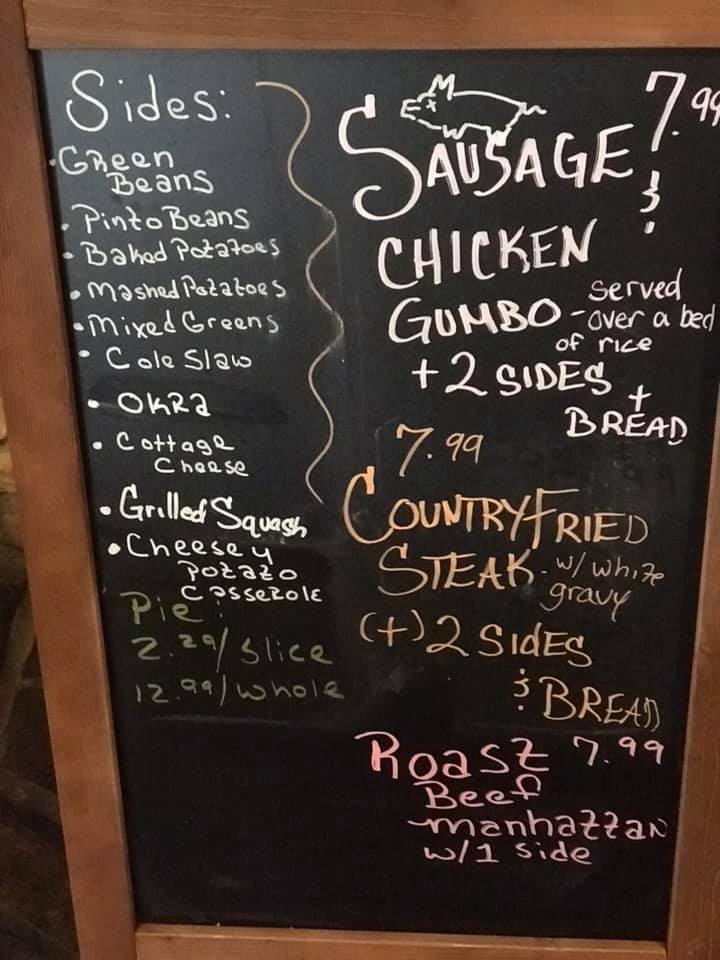 Sides:
• Green
Beans
• Pinto Beans
• Baked Potatoes
• Mashed Potatoes
• Mixed Greens
• Cole Slaw
• Okra
• Cottage
Cheese
• Grilled Squash
• Cheesey
Potato
Casserole
Pie:
2.29/slice
12.99/whole
7.99
SAUSAGE &
CHICKEN
GUMBO - served
over a bed
of rice
+ 2 SIDES +
BREAD
7.99
COUNTRY FRIED
STEAK - w/ white
gravy
(+) 2 SIDES
& BREAD
Roast 7.99
Beef
manhattan
w/1 side